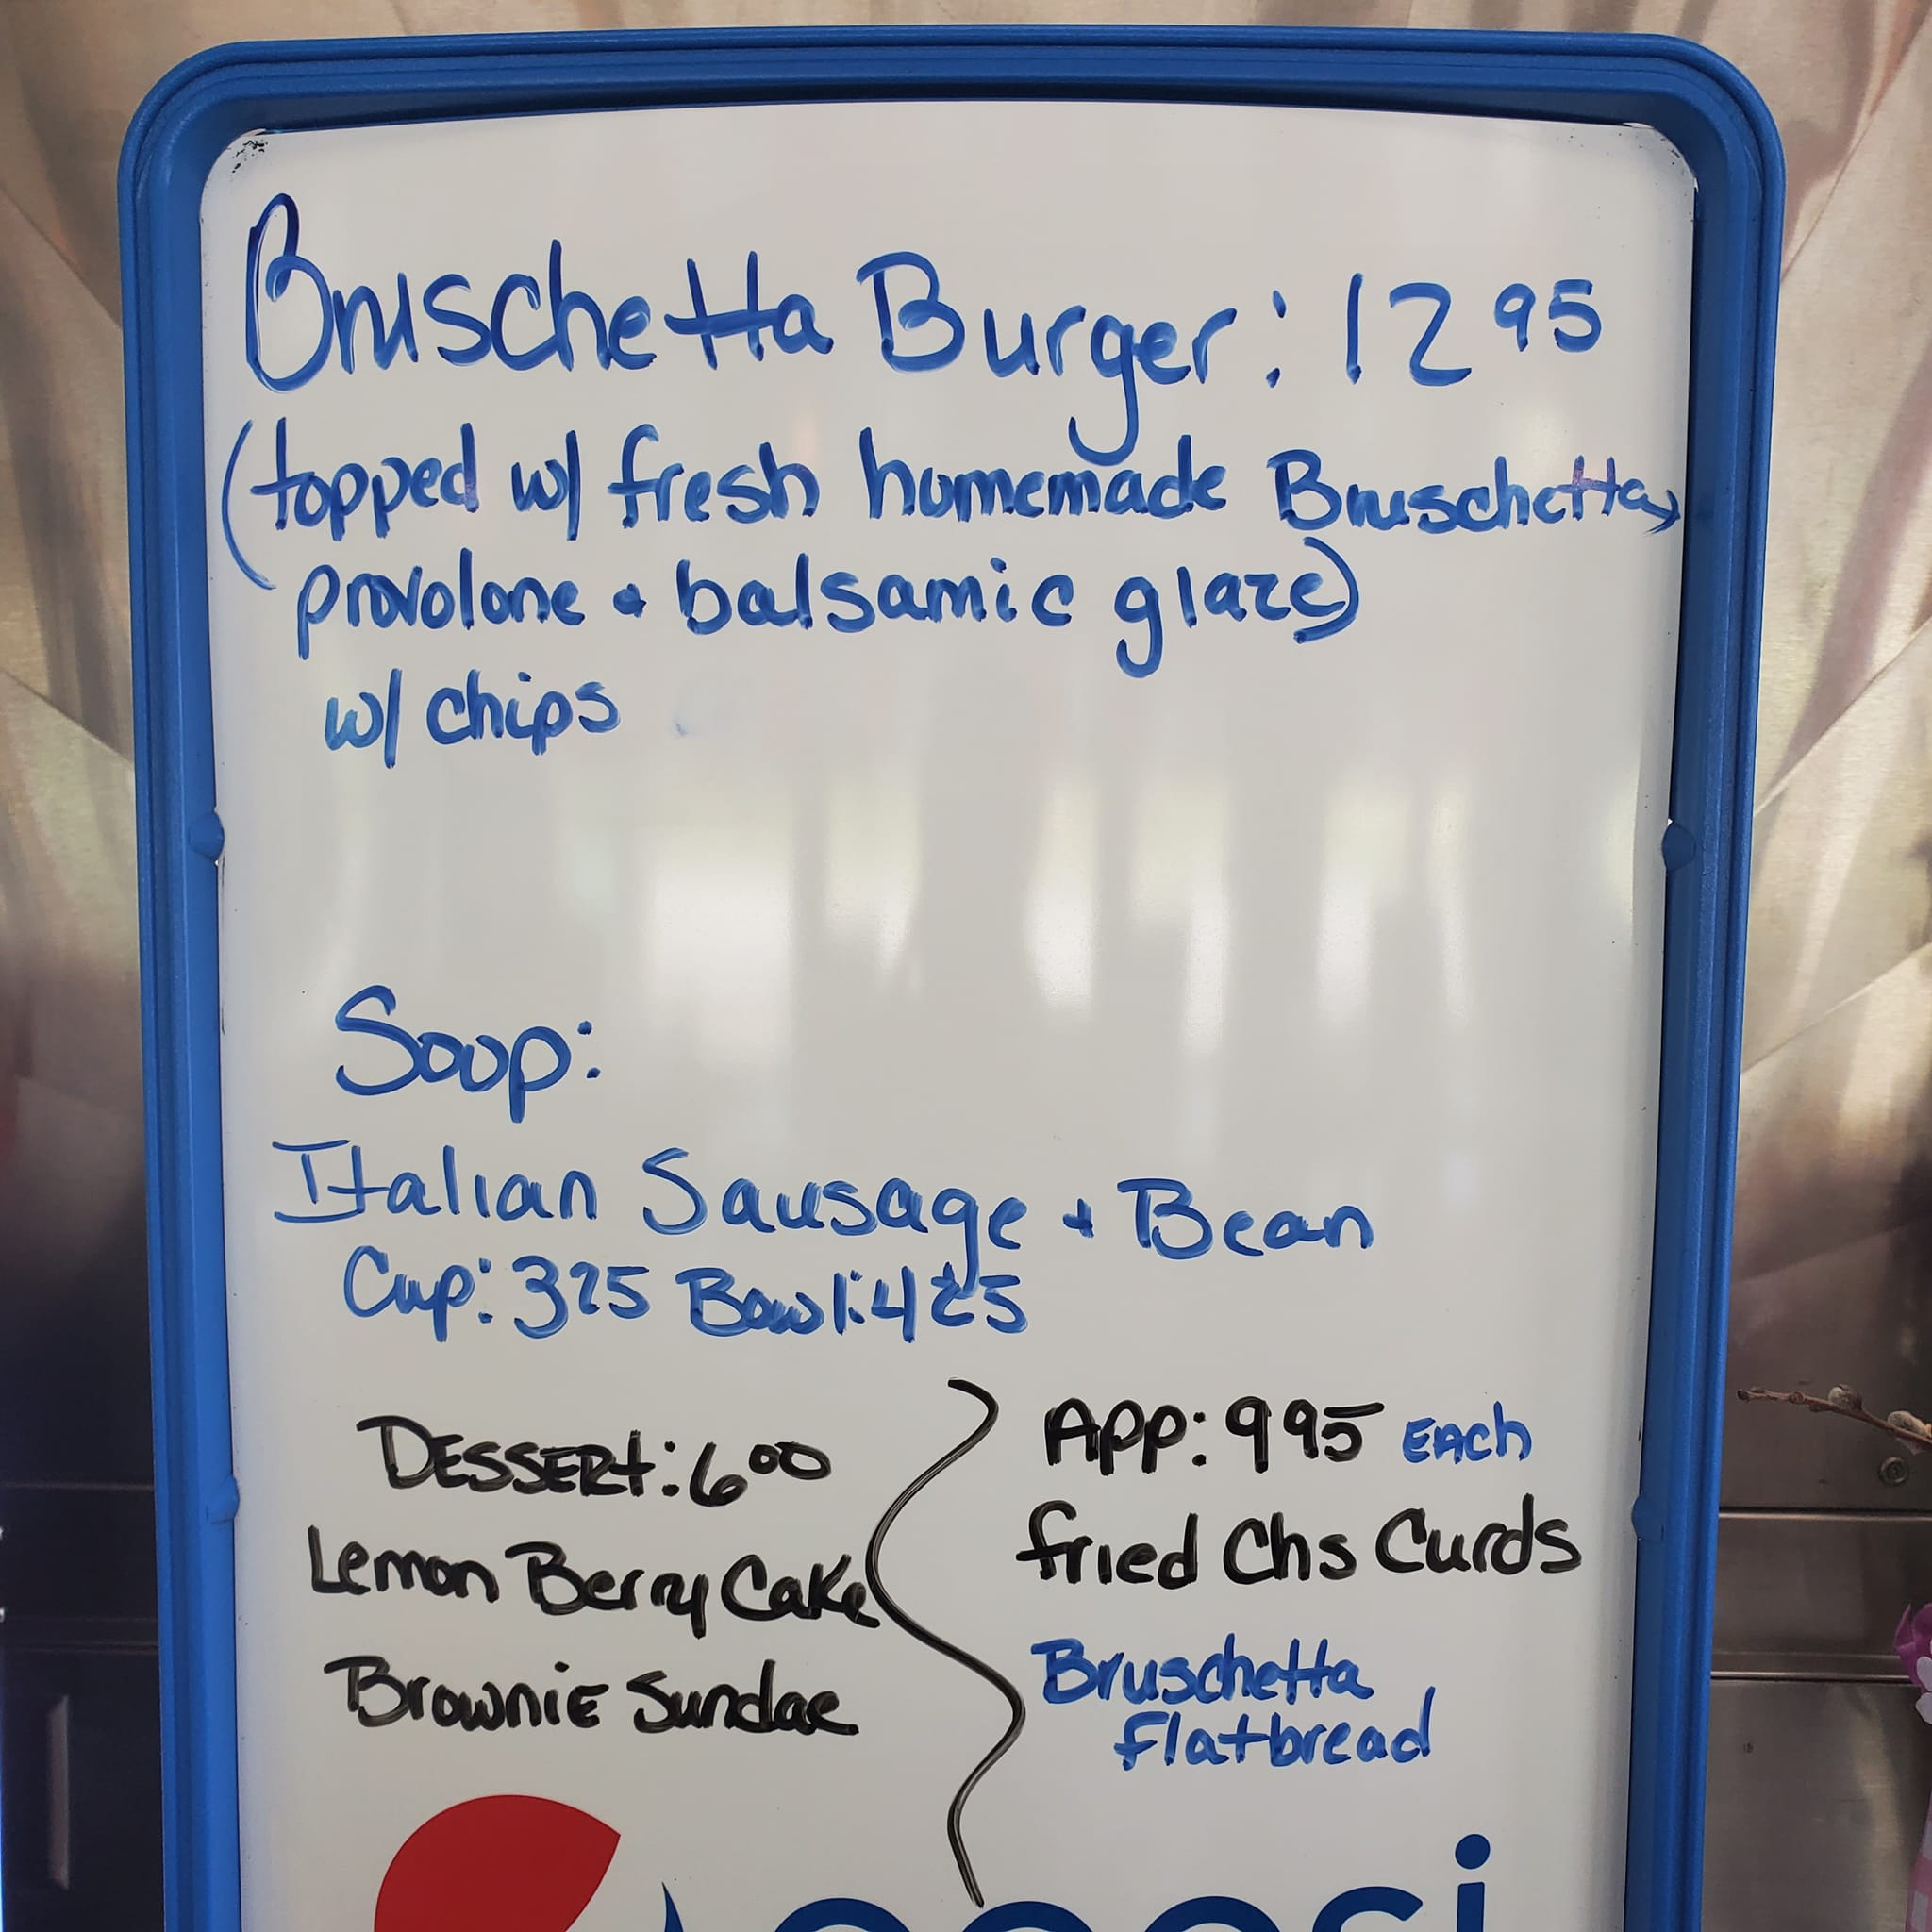 Bruschetta Burger: 12 95
(topped w/ fresh homemade Bruschetta,
provolone + balsamic glaze)
w/ chips
Soup:
Italian Sausage + Bean
Cup: 325 Bowl: 425
DESSERt: 6 00
Lemon Berry Cake
BrowniE Sundae
APP: 995 EAch
fried Chs Curds
Bruschetta
flatbread
pepsi